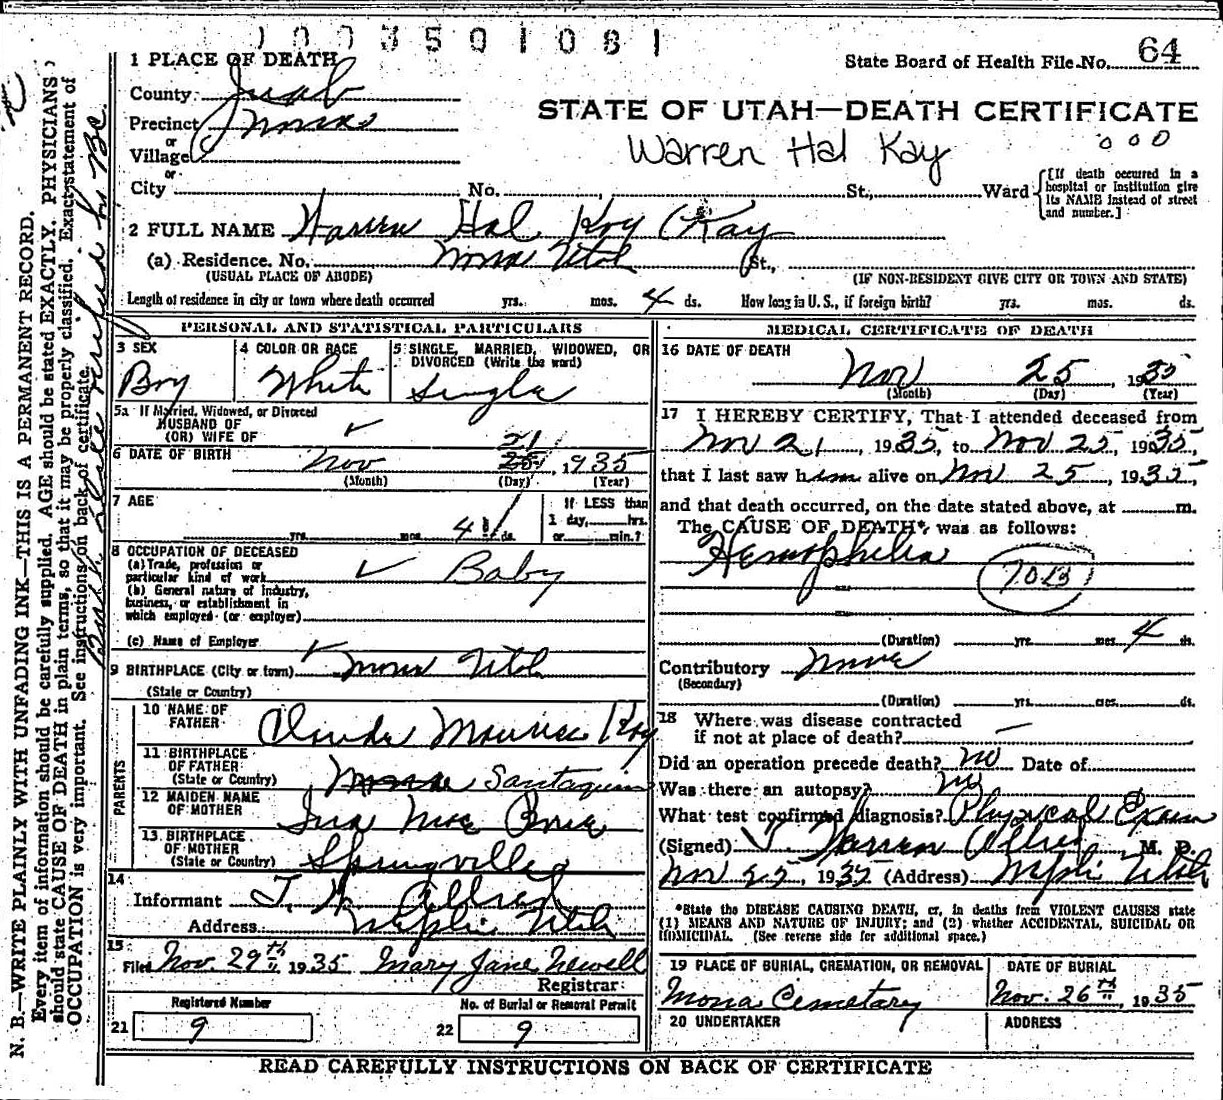 1003501081
1 PLACE OF DEATH
State Board of Health File No. 64
County Juab
STATE OF UTAH—DEATH CERTIFICATE
Precinct Mona
or
Village
Warren Hal Kay
000
or
City No. , St., Ward
[If death occurred in a hospital or institution give its NAME instead of street and number.]
2 FULL NAME Warren Hal Koy (Kay
(a) Residence. No. Mona Utah St.,
(USUAL PLACE OF ABODE) (IF NON-RESIDENT GIVE CITY OR TOWN AND STATE)
Length of residence in city or town where death occurred yrs. mos. 4 ds. How long in U. S., if foreign birth? yrs. mos. ds.
PERSONAL AND STATISTICAL PARTICULARS
3 SEX
Boy
4 COLOR OR RACE
White
5 SINGLE, MARRIED, WIDOWED, OR
DIVORCED (Write the word)
Single
5a If Married, Widowed, or Divorced
HUSBAND OF
(OR) WIFE OF
21
6 DATE OF BIRTH Nov 25, 1935
(Month) (Day) (Year)
7 AGE
yrs. mos. 4 ds.
If LESS than
1 day, hrs.
or min.?
8 OCCUPATION OF DECEASED
(a) Trade, profession or
particular kind of work Baby
(b) General nature of industry,
business, or establishment in
which employed (or employer)
(c) Name of Employer
9 BIRTHPLACE (City or town) Mona Utah
(State or Country)
PARENTS
10 NAME OF
FATHER Claude Maurice Koy
11 BIRTHPLACE
OF FATHER
(State or Country) Mona Santaquin
12 MAIDEN NAME
OF MOTHER
13 BIRTHPLACE
OF MOTHER
(State or Country) Springville
14
Informant
Address Nephi Utah
15
Filed Nov. 29th, 1935 Mary Jane Newell
Registrar
Registered Number
21 9
No. of Burial or Removal Permit
22 9
MEDICAL CERTIFICATE OF DEATH
16 DATE OF DEATH
Nov 25, 1935
(Month) (Day) (Year)
17 I HEREBY CERTIFY, That I attended deceased from
Nov 21, 1935, to Nov 25, 1935,
that I last saw him alive on Nov 25, 1935,
and that death occurred, on the date stated above, at m.
The CAUSE OF DEATH* was as follows:
Hemophelia
(Duration) yrs. mos. 4 ds.
Contributory None
(Secondary)
(Duration) yrs. mos. ds.
18 Where was disease contracted
if not at place of death?
Did an operation precede death? no Date of
Was there an autopsy? no
What test confirmed diagnosis? Physical Exam
(Signed) Warren Allred M. D.
Nov 25, 1935 (Address) Nephi Utah
*State the DISEASE CAUSING DEATH, or, in deaths from VIOLENT CAUSES state
(1) MEANS AND NATURE OF INJURY; and (2) whether ACCIDENTAL, SUICIDAL OR
HOMICIDAL. (See reverse side for additional space.)
19 PLACE OF BURIAL, CREMATION, OR REMOVAL
Mona Cemetary
DATE OF BURIAL
Nov. 26th, 1935
20 UNDERTAKER
ADDRESS
READ CAREFULLY INSTRUCTIONS ON BACK OF CERTIFICATE
N. B.—WRITE PLAINLY WITH UNFADING INK—THIS IS A PERMANENT RECORD.
Every item of information should be carefully supplied. AGE should be stated EXACTLY. PHYSICIANS
should state CAUSE OF DEATH in plain terms, so that it may be properly classified. Exact statement of
OCCUPATION is very important. See instructions on back of certificate.
Birth date verified by BC.